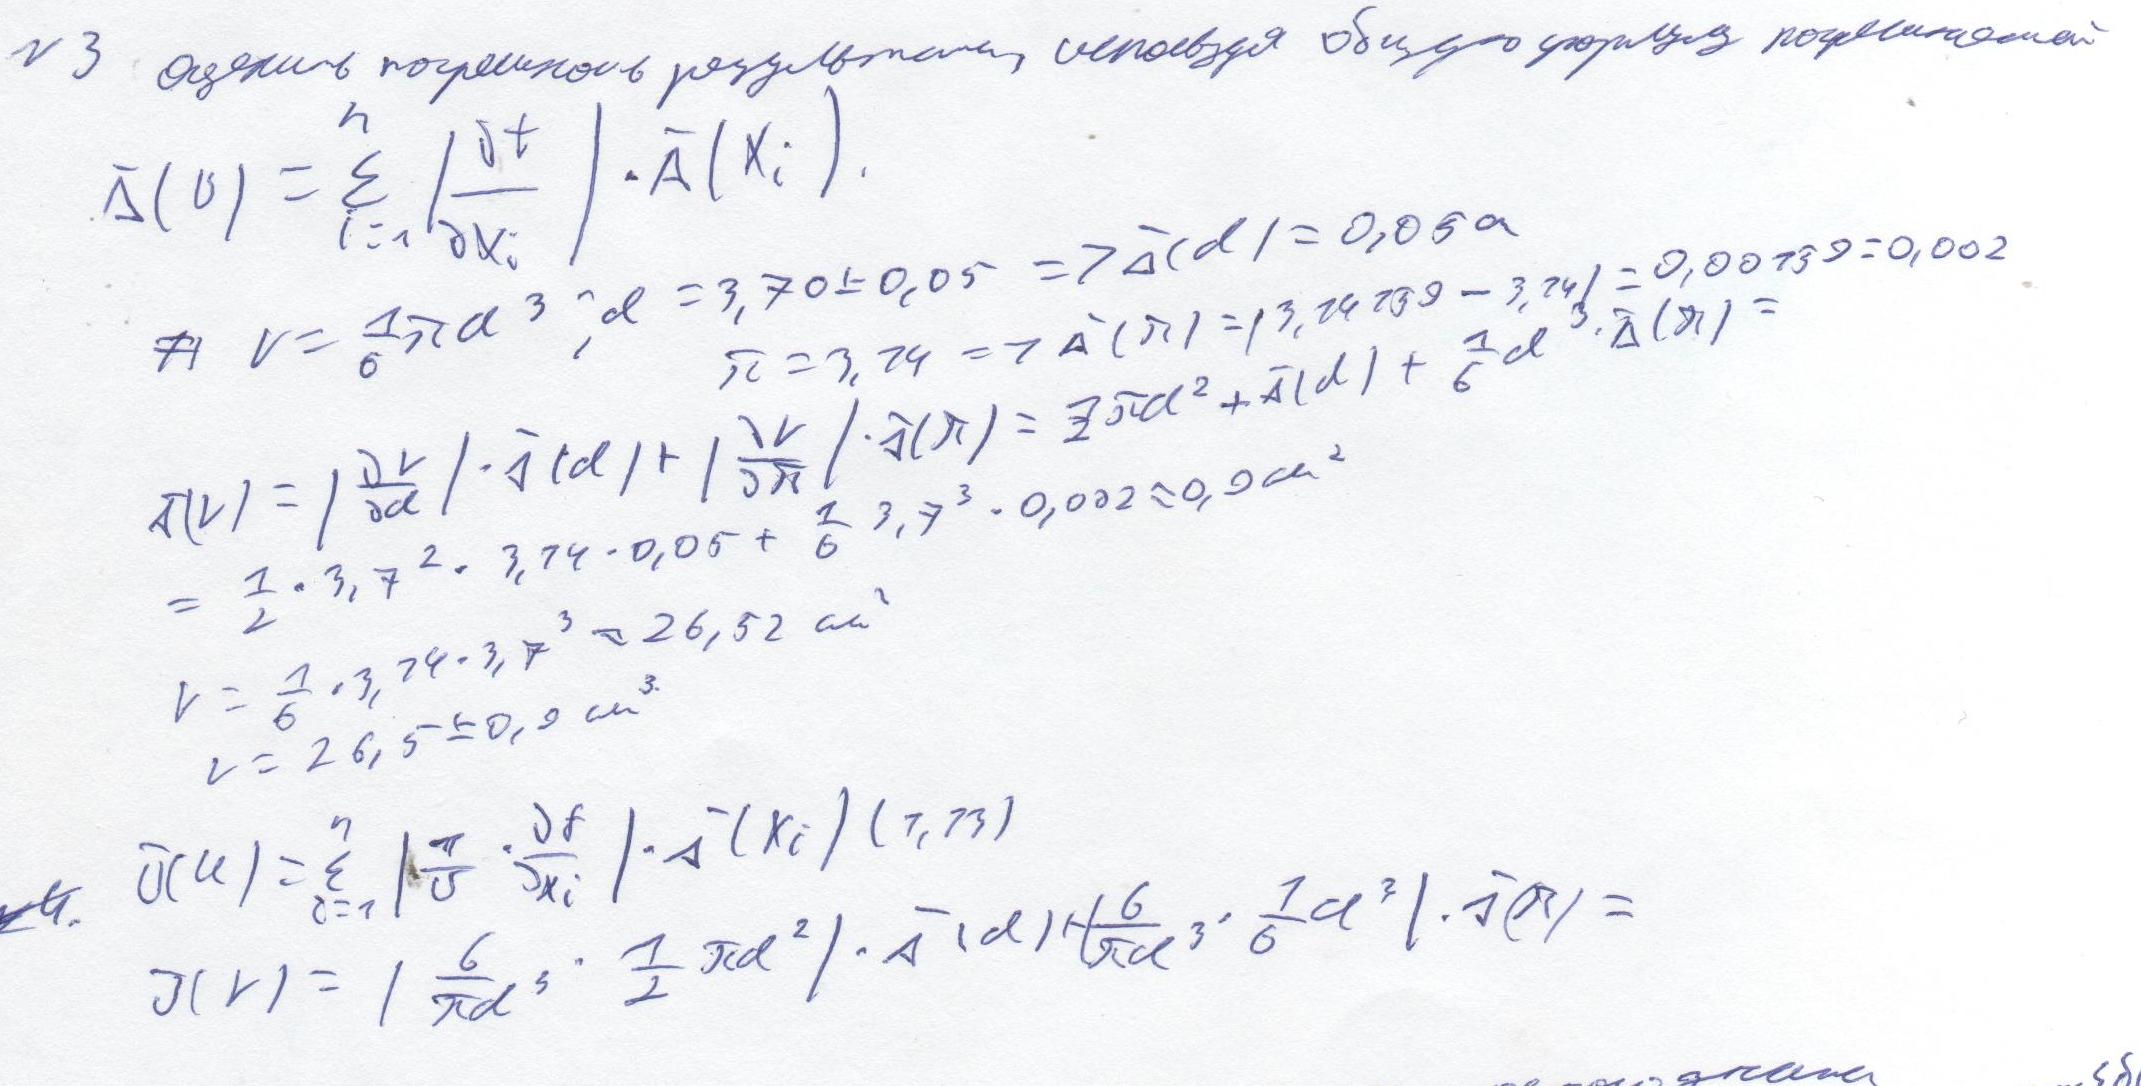 N 3 Оценить погрешность результата, используя общую формулу погрешностей
Δ̄(U) = Σ (i=1, n) |∂f/∂Xi| · Δ̄(Xi).
V = 1/6 πd³; d = 3,70 ± 0,05 => Δ̄(d) = 0,05 см
π = 3,14 => Δ̄(π) = |3,14159 - 3,14| = 0,00159 = 0,002
Δ̄(V) = |∂V/∂d| · Δ̄(d) + |∂V/∂π| · Δ̄(π) = 1/2 πd² + Δ̄(d) + 1/6 d³ · Δ̄(π) =
= 1/2 · 3,7² · 3,14 · 0,05 + 1/6 3,7³ · 0,002 ≈ 0,9 см²
V = 1/6 · 3,14 · 3,7³ ≈ 26,52 см³
V = 26,5 ± 0,9 см³.
4. δ̄(U) = Σ (i=1, n) |1/U · ∂f/∂Xi| · Δ̄(Xi) (1,13)
δ(V) = |6/πd³ · 1/2 πd²| · Δ̄(d) + |6/πd³ · 1/6 d³| · Δ̄(π) =